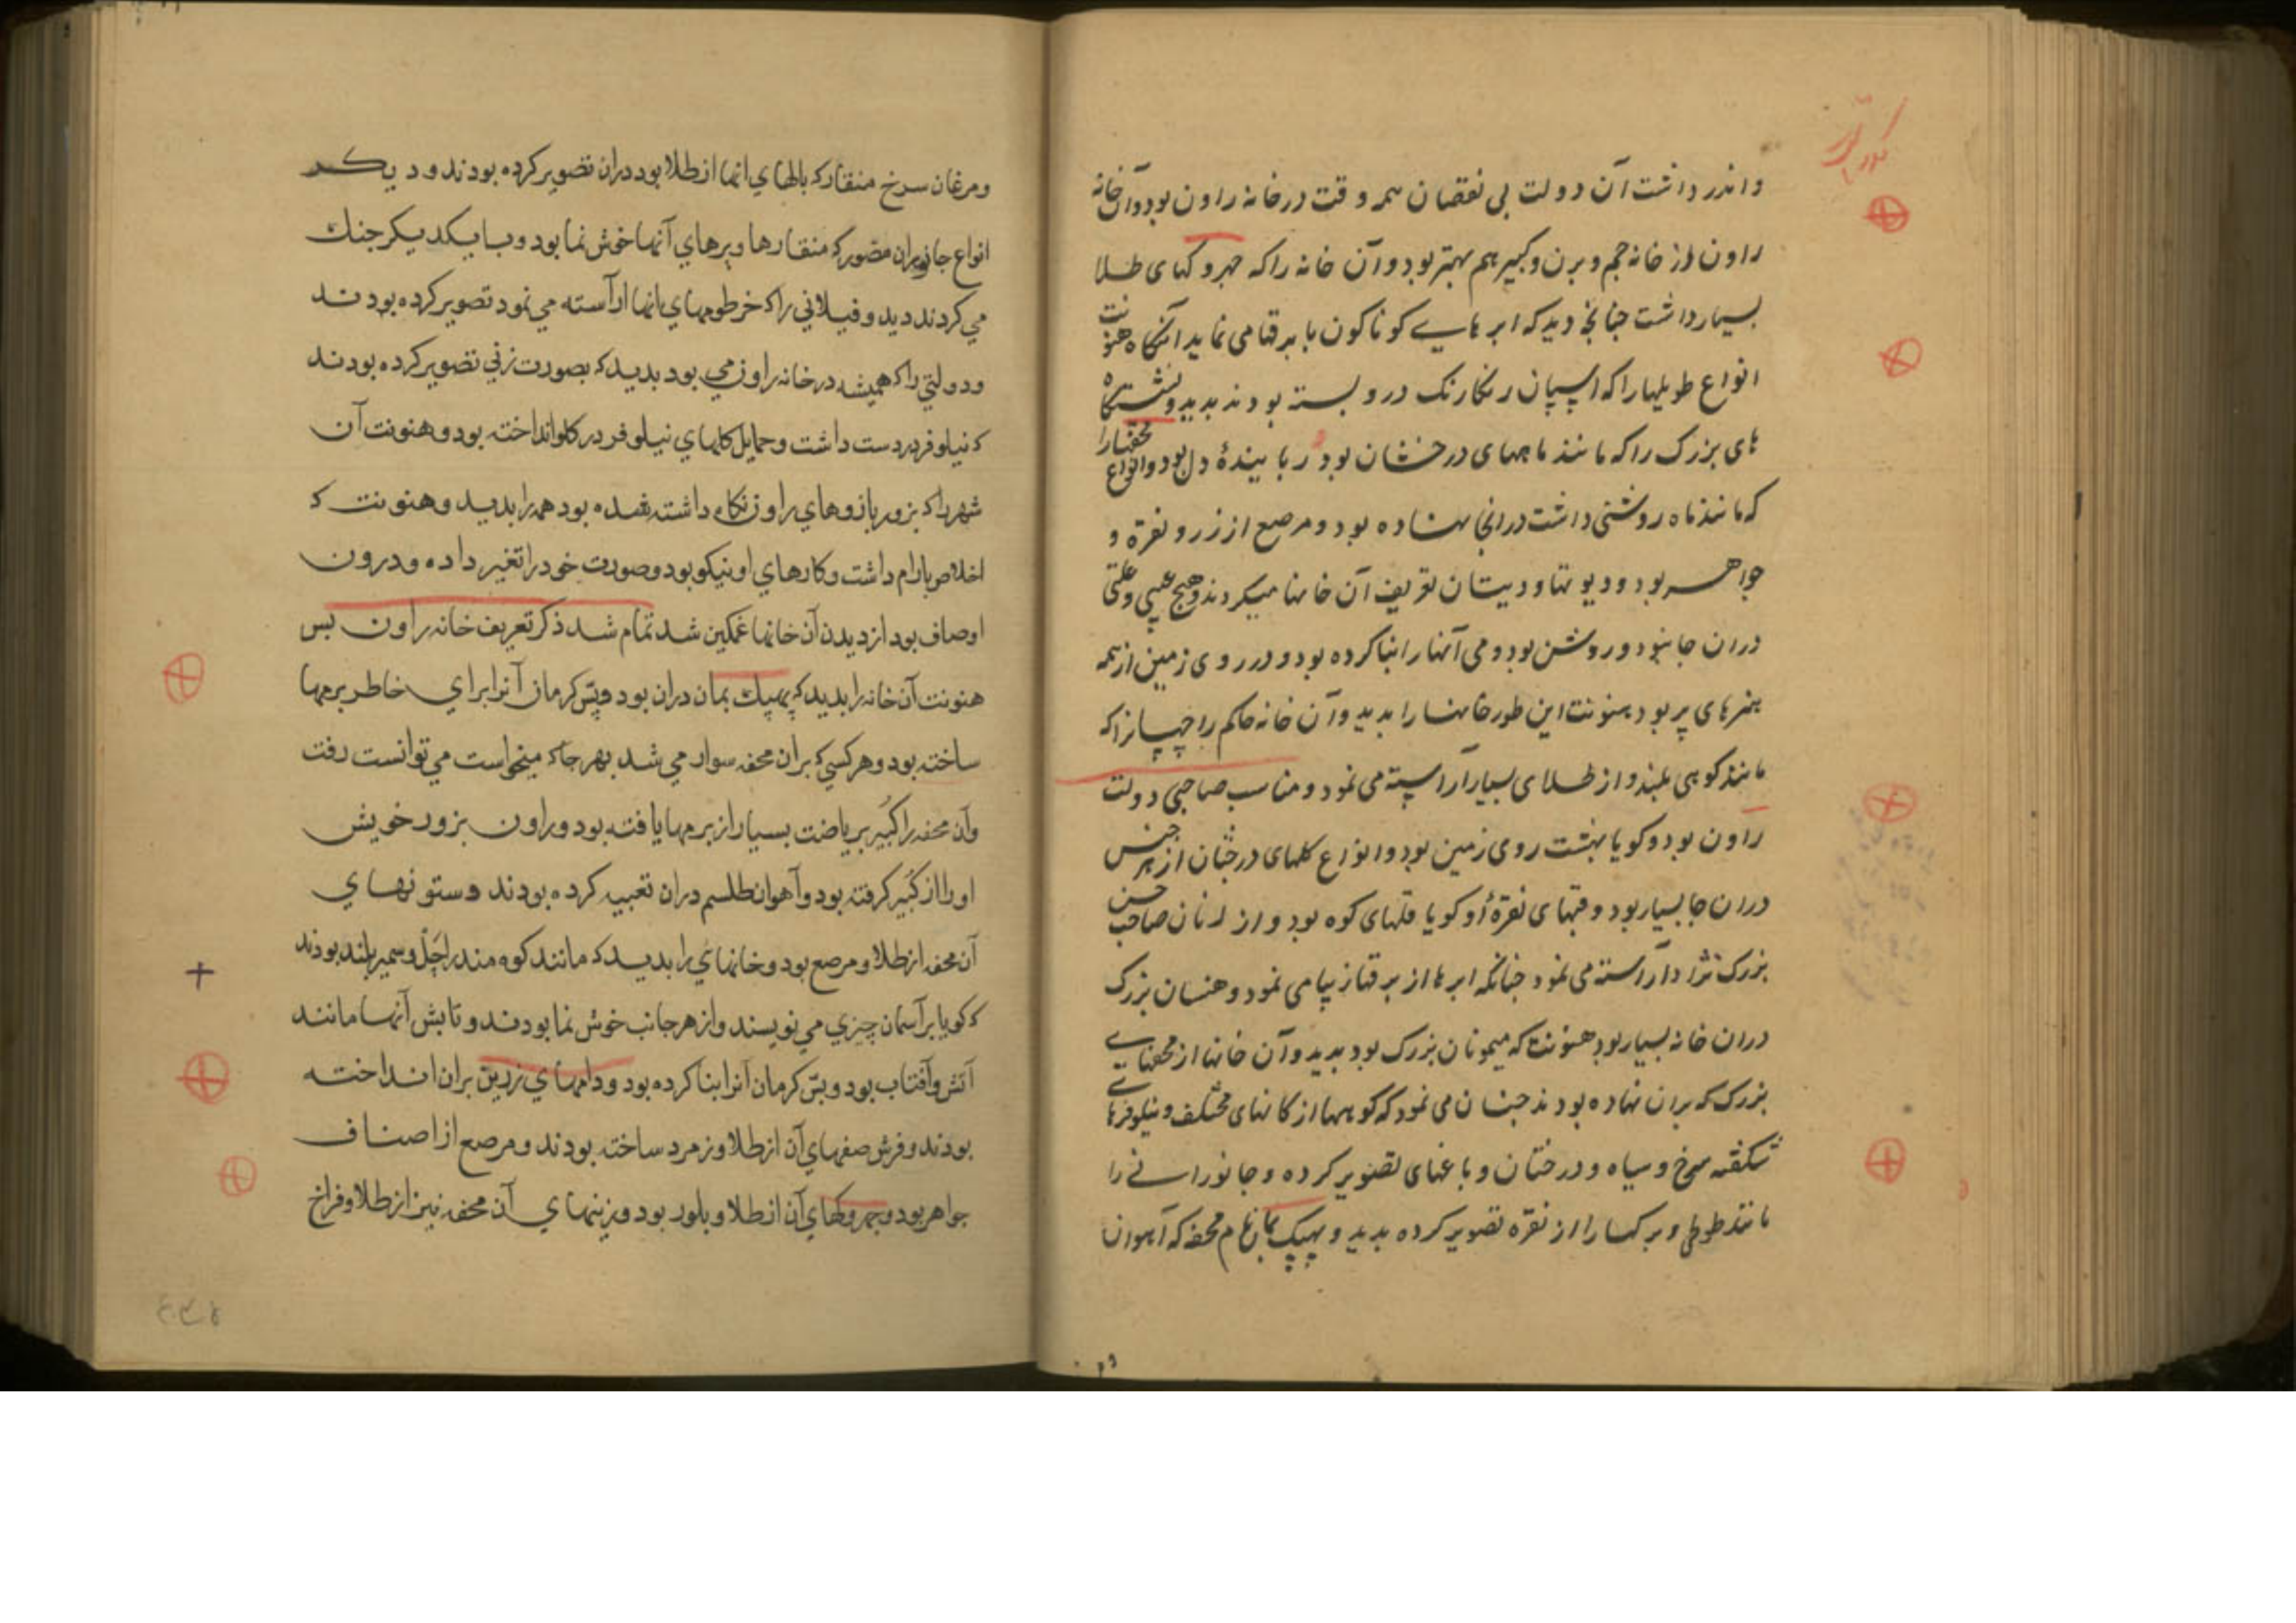 و اندر داشت آن دولت بی نقصان همه وقت در خانه راون بود و آن خانه
راون از خانه جم و برن و کبیر هم بهتر بود و آن خانه را که جهروکهای طلا
بسیار داشت چنانچه دید که ابر هایے کوناکون با برقها می نماید آنکاه هنونت
انواع طویلها را که اسپان رنکارنک درو بسته بودند بدید و نشستگاه
های بزرک را که مانند ماههای درخشان بود ربایندهٔ دل بود و انواع محفها را
که مانند ماه روشنی داشت در انجا نهاده بود و مرصع از زر و نقره و
جواهر بود و دیوتها و دیتان تعریف آن خانها میکردند و هیچ عیبی و علتی
دران جا نبود و روشن بود و می آنها را بنا کرده بود و در روی زمین از همه
هنرهای پر بود هنونت این طور خانها را بدید و آن خانه حاکم راچهسانرا که
مانند کوهی بلند و از طلای بسیار آراسته می نمود و مناسب صاحبی دولت
راون بود و کویا بهشت روی زمین بود و انواع کلهای درختان از هر جنس
دران جا بسیار بود و قبهای نقرهٔ او کویا قلهای کوه بود و از زنان صاحب حسن
بزرک نژاد آراسته می نمود چنانکه ابرها از برقها زیبا می نمود و هنسان بزرک
دران خانه بسیار بود هنونت که میمونان بزرک بود بدید و آن خانها از محفهایے
بزرک که بران نهاده بودند چنان می نمود که کوهها از کانهای مختلف و نیلوفرهایے
شکفته سرخ و سیاه و درختان و باغهای تصویر کرده و جانورانے را
مانند طوطی و برکها را از نقره تصویر کرده بدید و پهپک بمان نام محفه که آهوان
و مرغان سرخ منقار که بالهاي انها از طلا بود دران تصویر کرده بودند و دیکر
انواع جانوران مصور که منقارها و پرهاي آنها خوش نما بود و با یکدیکر جنك
مي کردند دید و فیلاني را که خرطومهاي انها آراسته مي نمود تصویر کرده بودند
و دولتي را که همیشه در خانه راون مي بود بدید که بصورت زني تصویر کرده بودند
که نیلوفر در دست داشت و حمایل کلهاي نیلوفر در کلو انداخته بود و هنونت آن
شهر را که بزور بازوهاي راون نکاه داشته شده بود همه را بدید و هنونت که
اخلاص بارام داشت و کارهاي او نیکو بود و صورت خود را تغیر داده و درون
اوصاف بود از دیدن آن خانها غمکین شد تمام شد ذکر تعریف خانه راون بس
هنونت آن خانه را بدید که پهپك بمان دران بود و بس کرمان آنرا براي خاطر برمها
ساخته بود و هر کسي که بران محفه سوار مي شد بهر جا که میخواست مي توانست رفت
و آن محفه را کبیر بریاضت بسیار از برمها یافته بود و راون بزور خویش
او را از کبیر کرفته بود و آهوان طلسم دران تعبیه کرده بودند و ستونهاي
آن محفه از طلا و مرصع بود و خانهاي را بدید که مانند کوه مندراچل و سمیر بلند بودند
که کویا بر آسمان چیزي مي نویسند و از هر جانب خوش نما بودند و تابش آنها مانند
آتش و آفتاب بود و بس کرمان آنرا بنا کرده بود و دامهاي زرین بران انداخته
بودند و فرش صفهاي آن از طلا و زمرد ساخته بودند و مرصع از اصناف
جواهر بود و جهروکهاي آن از طلا و بلور بود و زینهاي آن محفه نیز از طلا و فراخ